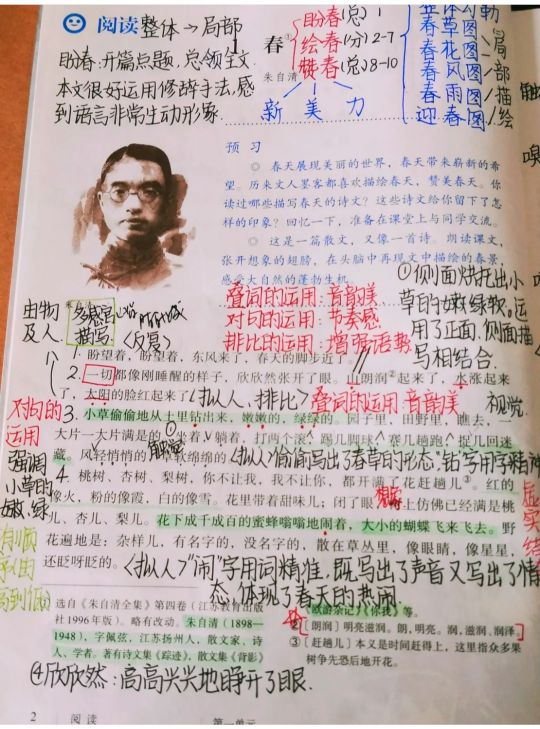 阅读 整体→局部
盼春:开篇点题,总领全文.
本文很好运用修辞手法,感
到语言非常生动形象.
1
春①
朱自清
盼春(总) 1
绘春(分) 2-7
赞春(总) 8-10
新 美 力
春草图
春花图
春风图
春雨图
迎春图
局
部
描
绘
预 习
◎ 春天展现美丽的世界,春天带来崭新的希
望。历来文人墨客都喜欢描绘春天,赞美春天。你
读过哪些描写春天的诗文?这些诗文给你留下了怎
样的印象?回忆一下,准备在课堂上与同学交流。
◎ 这是一篇散文,又像一首诗。朗读课文,
张开想象的翅膀,在头脑中再现文中描绘的春景,
感受大自然的蓬勃生机。
①侧面烘托出小
草的嫩绿软。运
用了正面、侧面描
写相结合.
叠词的运用:音韵美
对句的运用:节奏感
排比的运用:增强语势
由物
及人
朱自清
多感官
描写.
(反复)
1. 盼望着,盼望着,东风来了,春天的脚步近了。
2. 一切都像刚睡醒的样子,欣欣然张开了眼。山朗润②起来了,水涨起来
了,太阳的脸红起来了。
(拟人、排比) 叠词的运用:音韵美
视觉.
对句的
运用
强调
小草的
嫩,绿
3. 小草偷偷地从土里钻出来,嫩嫩的,绿绿的。园子里,田野里,瞧去,一
大片一大片满是的。坐着,躺着,打两个滚,踢几脚球,赛几趟跑,捉几回迷
藏。风轻悄悄的,草软绵绵的。
(拟人)“偷偷”写出了春草的形态,“钻”字用字精神
4. 桃树、杏树、梨树,你不让我,我不让你,都开满了花赶趟儿③。红的
像火,粉的像霞,白的像雪。花里带着甜味儿;闭了眼,树上仿佛已经满是桃
儿、杏儿、梨儿。花下成千成百的蜜蜂嗡嗡地闹着,大小的蝴蝶飞来飞去。野
花遍地是:杂样儿,有名字的,没名字的,散在草丛里,像眼睛,像星星,
还眨呀眨的。
(拟人)“闹”字用词精准,既写出了声音又写出了情
态,体现了春天的热闹.
虚
实
结
高到低
选自《朱自清全集》第四卷(江苏教育出版
社1996年版)。略有改动。朱自清(1898—
1948),字佩弦,江苏扬州人,散文家、诗
人、学者。著有诗文集《踪迹》,散文集《背影》
《欧游杂记》《你我》等。
②〔朗润〕明亮滋润。朗,明亮。润,滋润、润泽。
③〔赶趟儿〕本义是时间赶得上,这里指众多果
树争先恐后地开花。
④欣欣然:高高兴兴地睁开了眼.
2 阅读 第一单元